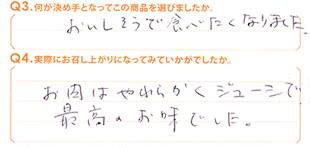 Q3.何が決め手となってこの商品を選びましたか。
おいしそうで食べたくなりました。
Q4.実際にお召し上がりになってみていかがでしたか。
お肉はやわらかくジューシで
最高のお味でした。